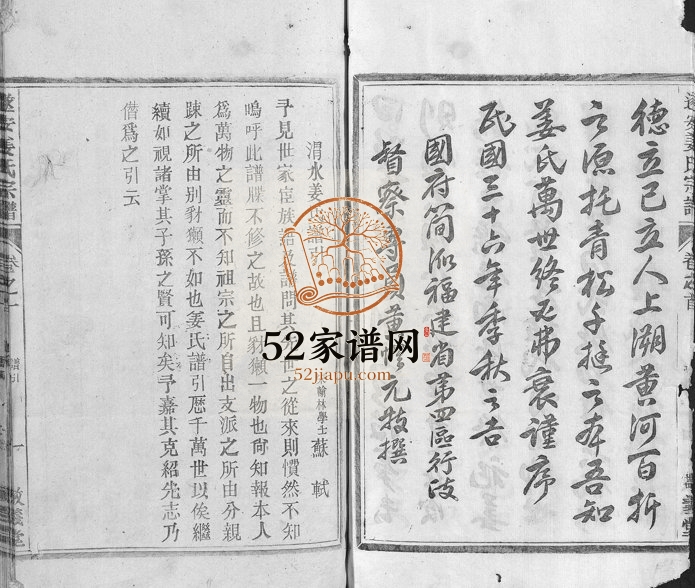 德立己立人上溯黄河百折
之源托青松千挺之本吾知
姜氏萬世終必弗衰謹序
民國三十六年季秋之吉
國府簡派福建省第四區行政
督察專員黃元撰
遂安姜氏宗譜
卷之首
渭水姜氏譜引
翰林學士蘇軾
予見世家宦族譜問其世之從來則懵然不知
嗚呼此譜牒不修之故也且豺獺一物也尚知報本人
爲萬物之靈而不知祖宗之所自出支派之所由分親
踈之所由别豺獺不如也姜氏譜引歷千萬世以俟繼
續如視諸掌其子孫之賢可知矣予嘉其克紹先志乃
僭爲之引云
遂安姜氏宗譜
卷之一
譜引
一
敦義堂
52家谱网
52jiapu.com